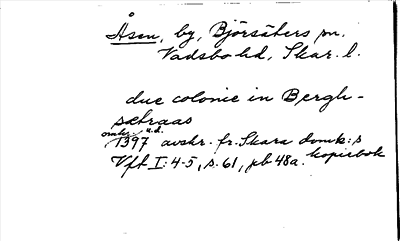 Åsen, by, Björsäters sn.
Vadsbo hd, Skar. l.
due colonie in Bergh-
sætraas
omkr. u.d.
1397 avskr. fr. Skara domk:s
kopiebok
Vft I: 4-5, s. 61, jb 48a.